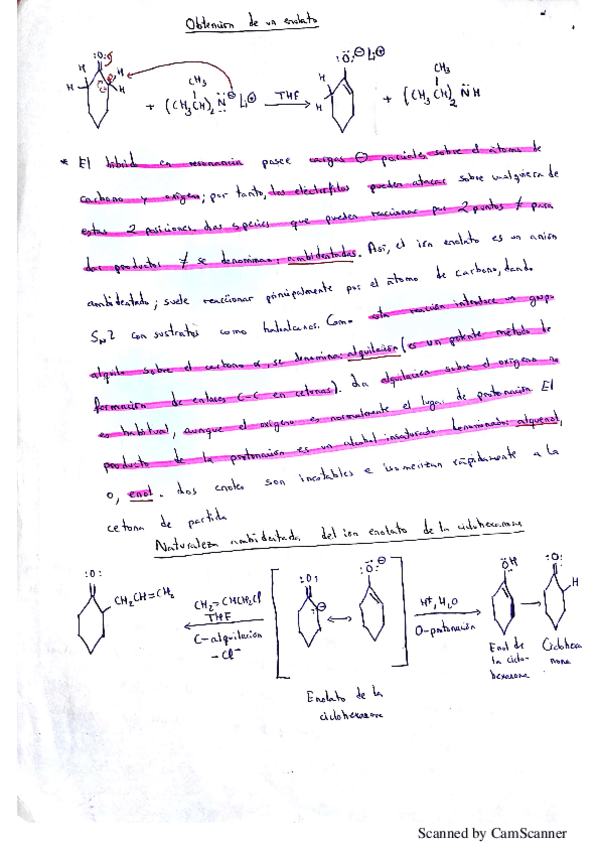 Obtención de un enolato
:O:
H
H
H
H
+ (CH₃CH)₂N̈⊖ Li⊕
CH₃
THF
:Ö:⊖ Li⊕
H
H
+ (CH₃CH)₂N̈H
CH₃
* El híbrido en resonancia posee cargas ⊖ parciales sobre el átomo de
carbono y oxígeno; por tanto, los electrófilos pueden atacar sobre cualquiera de
estas 2 posiciones. Las especies que pueden reaccionar por 2 puntos ≠ para
dar productos ≠ se denominan: ambidentadas. Así, el ion enolato es un anión
ambidentado; suele reaccionar principalmente por el átomo de carbono, dando
SN2 con sustratos como haloalcanos. Como esta reacción introduce un grupo
alquilo sobre el carbono α, se denomina: alquilación (es un potente método de
formación de enlaces C-C en cetonas). La alquilación sobre el oxígeno no
es habitual, aunque el oxígeno es normalmente el lugar de protonación. El
producto de la protonación es un alcohol insaturado denominado: alquenol,
o, enol. Los enoles son inestables e isomerizan rápidamente a la
cetona de partida
Naturaleza ambidentada del ion enolato de la ciclohexanona
:O:
CH₂CH=CH₂
CH₂=CHCH₂Cl
THF
C-alquilación
-Cl⁻
:O:
⊖
:Ö:⊖
H⁺, H₂O
O-protonación
:ÖH
:O:
H
Enolato de la
ciclohexanona
Enol de
la ciclo-
hexanona
Ciclohexa
nona
Scanned by CamScanner